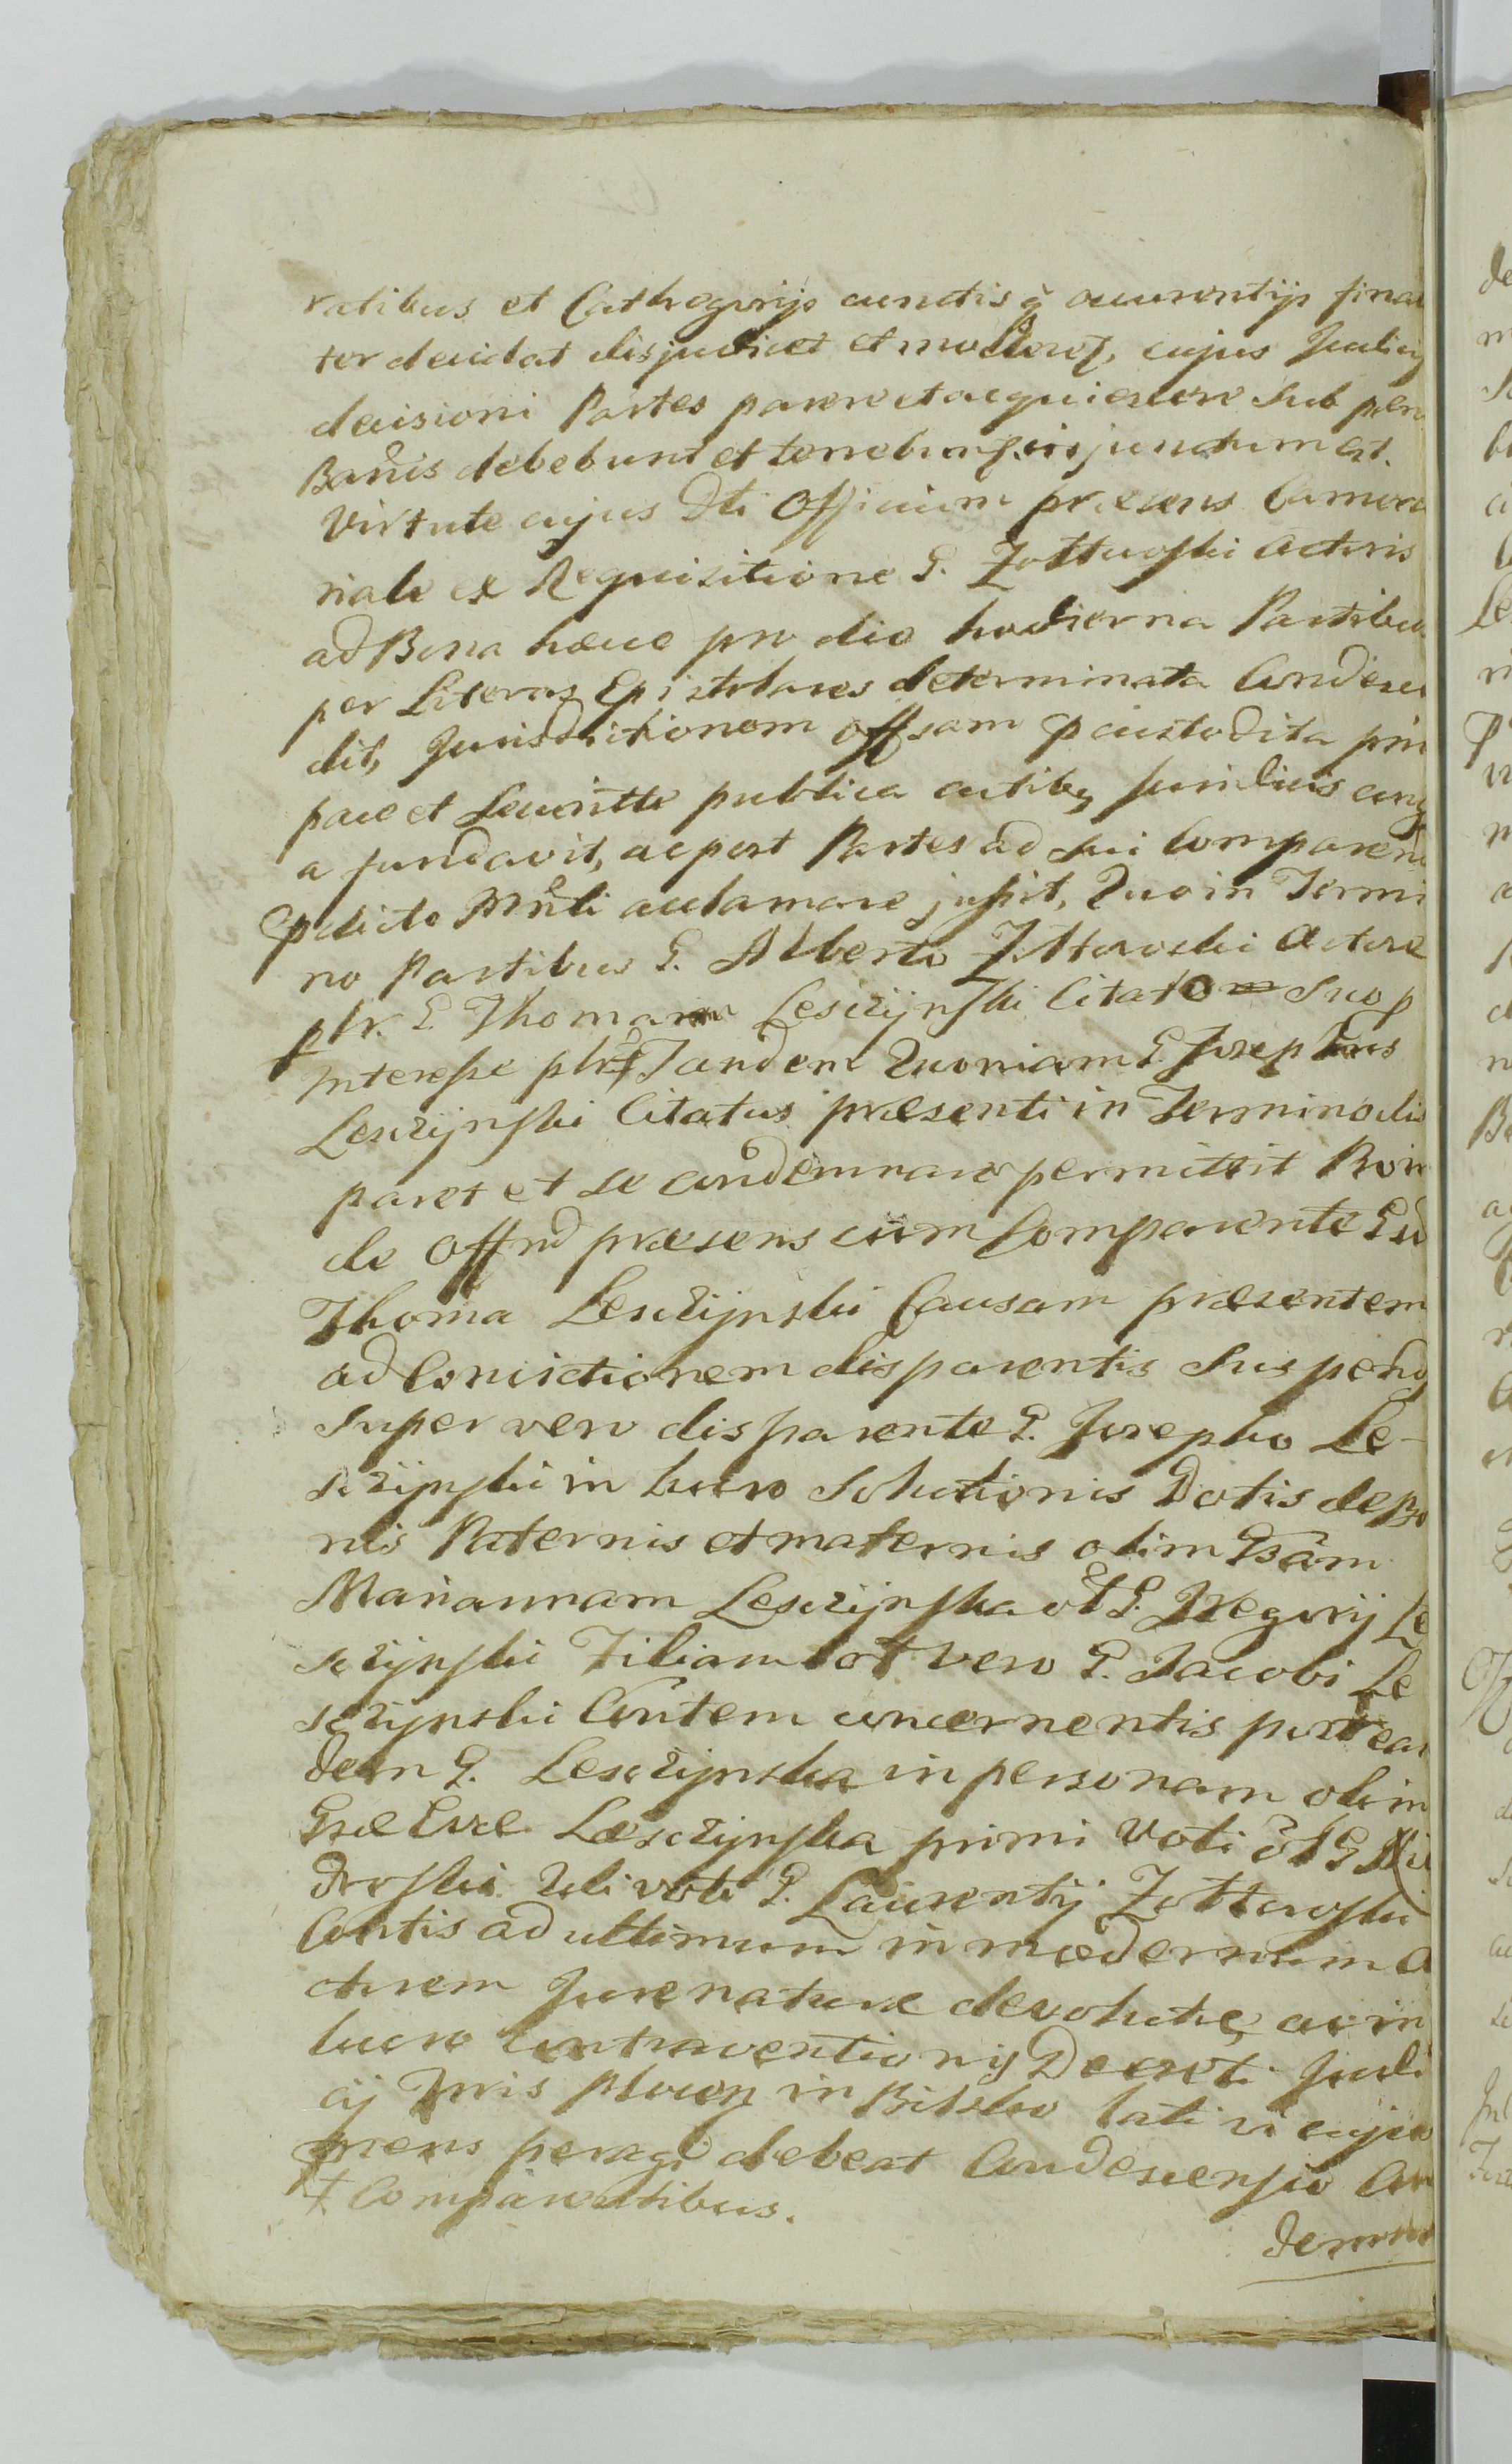 ratibus et Cathegorijs cunctis q occurentijs final
ter decidat disjudicet et cujus Judicij
decisioni Partes parere et acquiescere sub pœn
Banis debebunt et injunctum est.
Virtute cujus Dti Officium præsens Camera
riale ex Requisitione G. Zołtowski Actoris
ad Bona hæcce pro die hodierna Partibus
per Literas Epistolares determinata Condescen
dit, Jurisdictionem offsam custodita prius
pace et Securitte publica actibq Juridicis
a fundavit, ac post Partes ad sui Comparend
Mnli acclamare jussit, Quo in Termi
no Partibus G. Alberto Zołtowski Actore
pltr. G Thoma Lesczÿnski Citato Suo p
Interesse Tandem Quoniam G Josephus
Lesczÿnski Citatus præsenti in Termino dis
paret et se condemnare permittit Proin
de Offnd præsens cum Comparente Gso
Thoma Lesczÿnski Causam præsentem
ad Convictionem disparentis Suspend
Super vero disparente G. Josepho Le-
sczÿnski in lucro Solutionis Dotis de Bo
nis Paternis et maternis olim Gsam
Mariannam Lesczÿnska olt G. Gregorij Le
sczÿnski Filiam olt vero G. Jacobi Le
sczÿnski Cnsortem concernentis post ean
dem G. Lesczÿnska in personam olim
Gsæ Evæ Lesczÿnska primi Voti olt G
2di voti G. Laurentij Zołtowski
Consortis ad ultimum in modernum A
ctorem Jure naturæ devolutæ, ac in
lucro Contraventionis Decreti Judi
cij in Bilsko lati vi cujus
præsens peragi debeat Condescensio Con
‡ Comparentibus.
demna